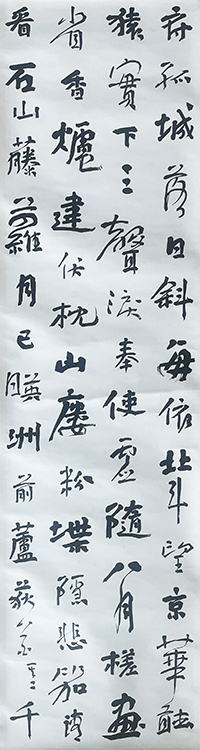 府孤城落日斜每依北斗望京華聽
猿實下三聲淚奉使虛隨八月槎畫
省香爐違伏枕山樓粉堞隱悲笳請
看石山藤蘿月已暎洲前蘆荻花千